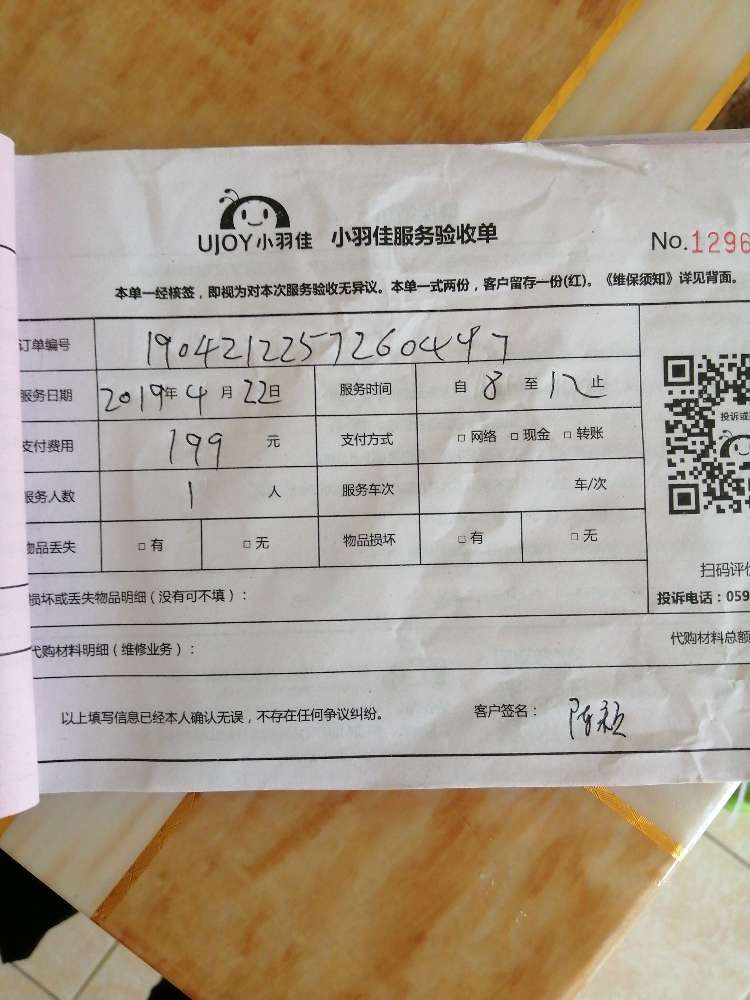 UJOY小羽佳 小羽佳服务验收单 No.1296
本单一经核签，即视为对本次服务验收无异议。本单一式两份，客户留存一份(红)。《维保须知》详见背面。
订单编号 190421225726 0497
服务日期 2019年4月22日 服务时间 自8至12止
支付费用 199元 支付方式 □网络 □现金 □转账
投诉或
服务人数 1人 服务车次 车/次
物品丢失 □有 □无 物品损坏 □有 □无
扫码评价
损坏或丢失物品明细（没有可不填）： 投诉电话：059
代购材料明细（维修业务）： 代购材料总额
以上填写信息已经本人确认无误，不存在任何争议纠纷。 客户签名：